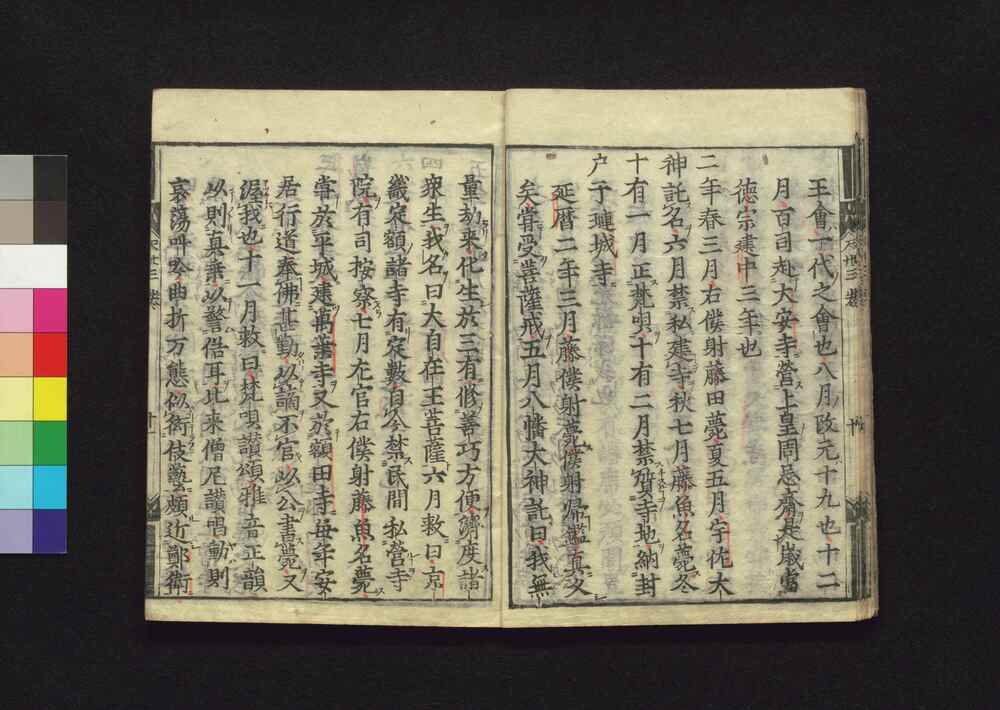 王會一代之會也八月改元十九也十二
月百司赴大安寺營上皇周忌齋是歲當
德宗建中三年也
二年春三月右僕射藤田薨夏五月宇佐大
神託名六月禁私建寺秋七月藤魚名薨冬
十有一月正梵唄十有二月禁質寺地納封
户于璉城寺
延曆二年三月藤僕射薨僕射歸鑑真又
矣甞受菩薩戒五月八幡大神託曰我無
量劫來化生於三有修善巧方便濟度諸
衆生我名曰大自在王菩薩六月敕曰京
畿定額諸寺有定數自今禁民間私營寺
院有司按察七月左官右僕射藤魚名薨
甞於平城建萬葉寺又於額田寺每年安
居行道奉佛甚勤以謫不官以公書薨又
渥我也十一月敕曰梵唄讃頌雅音正韻
以則真乗以警俗耳比来僧尼讃唱動則
哀蕩叫吟曲折万態似衒伎藝頗近鄭衛